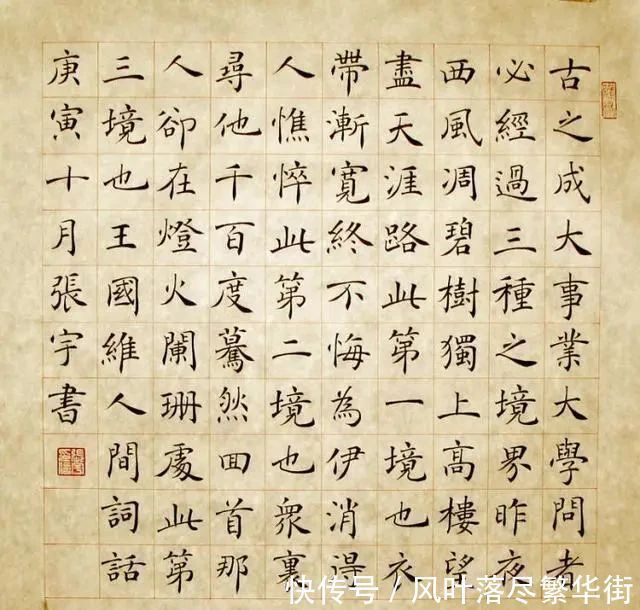 古之成大事業大學問者
必經過三種之境界昨夜
西風凋碧樹獨上高樓望
盡天涯路此第一境也衣
帶漸寬終不悔為伊消得
人憔悴此第二境也眾裏
尋他千百度驀然回首那
人卻在燈火闌珊處此第
三境也王國維人間詞話
庚寅十月張宇書
快传号/风叶落尽繁华街